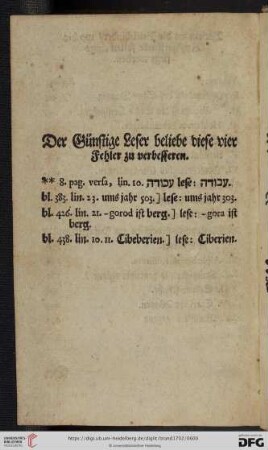 Der Günstige Leser beliebe diese vier
Fehler zu verbesseren.
** 8. pag. versa, lin. 10. עכורה lese: עבודה.
bl. 385. lin. 23. ums jahr 503.] lese: ums jahr 303.
bl. 426. lin. 21. -gorod ist berg.] lese: -gora ist
berg.
bl. 438. lin. 10. 11. Cibeberien.] lese: Ciberien.
https://digi.ub.uni-heidelberg.de/diglit/
© Universitätsbibliothek Heidelberg